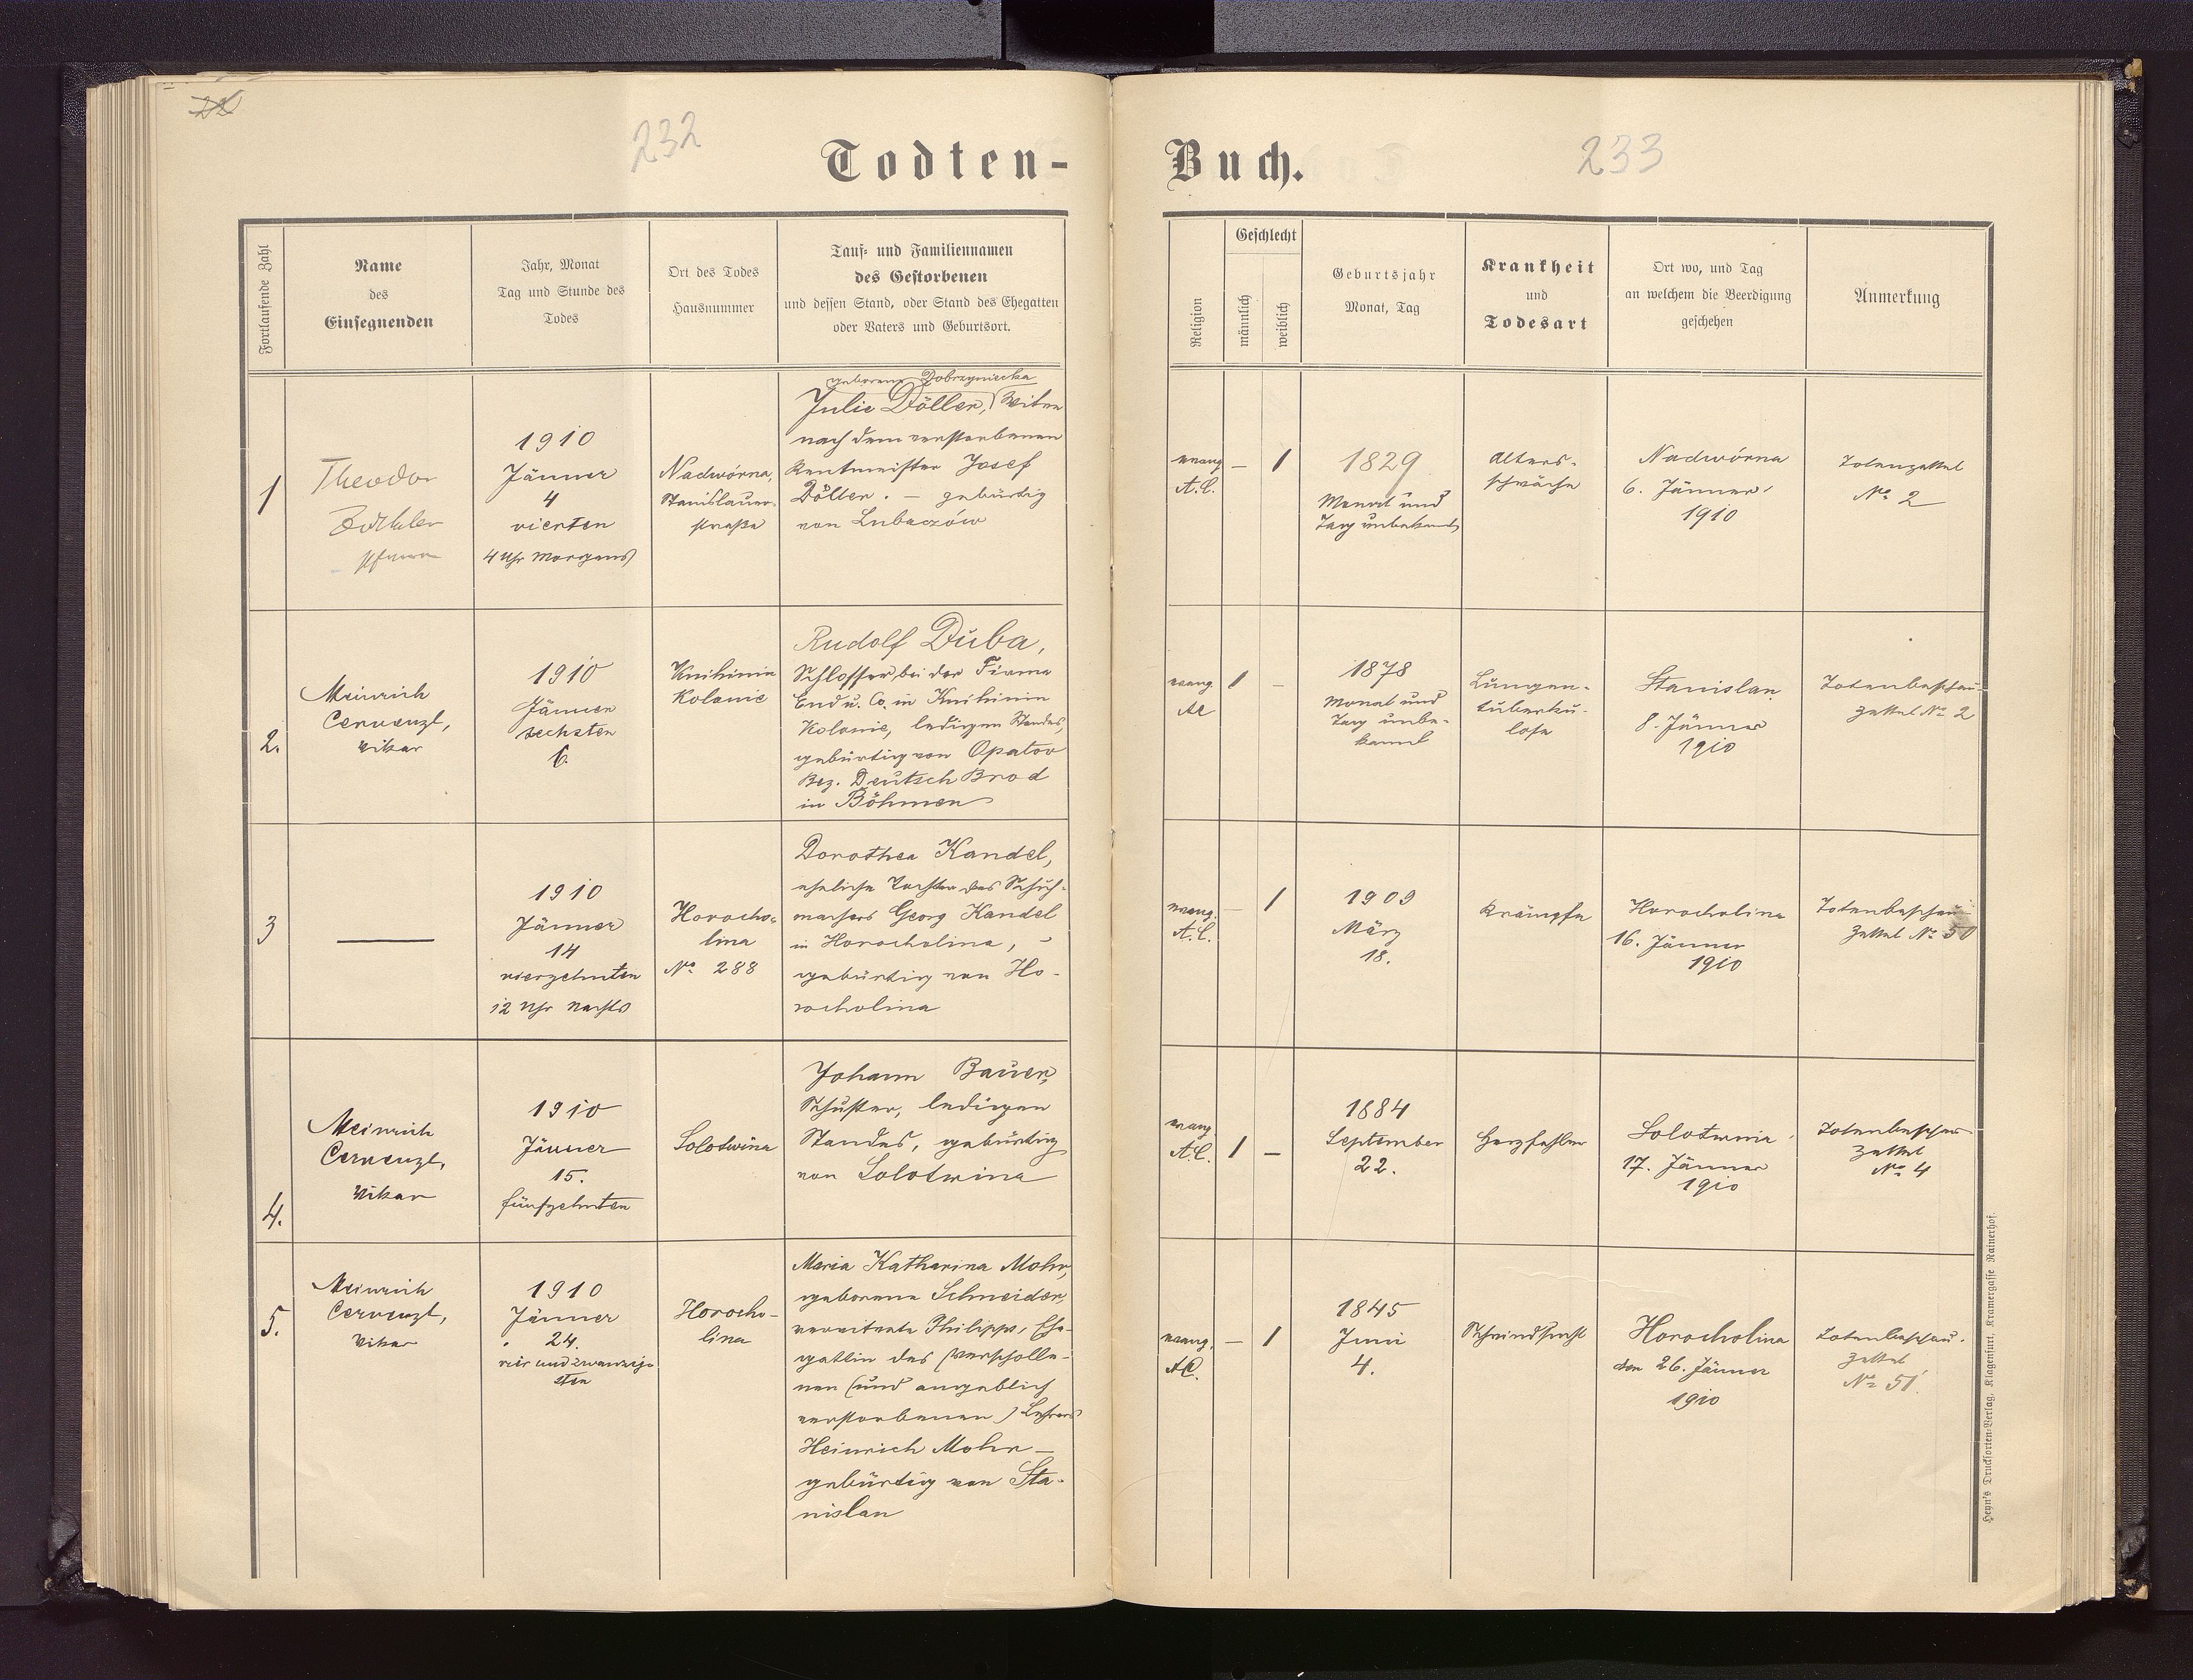 232
Todten-
Buch.
233
Fortlaufende Zahl
Name
des
Einsegnenden
Jahr, Monat
Tag und Stunde des
Todes
Ort des Todes
Hausnummer
Tauf- und Familiennamen
des Gestorbenen
und dessen Stand, oder Stand des Ehegatten
oder Vaters und Geburtsort.
Religion
Geschlecht
männlich
weiblich
Geburtsjahr
Monat, Tag
Krankheit
und
Todesart
Ort wo, und Tag
an welchem die Beerdigung
geschehen
Anmerkung
1
Theodor
Zöckler
Pfarrer
1910
Jänner
4
vierten
4 Uhr Morgens
Nadwórna,
Stanislauer-
straße
geborene Dobrzyniecka
Julie Döller, Witwe
nach dem verstorbenen
Rentmeister Josef
Döller. — gebürtig
von Lubaczów
evang
A.C.
— 1
1829
Monat und
Tag unbekannt
Alters-
schwäche
Nadwórna
6. Jänner
1910
Totenzettel
No 2
2.
Heinrich
Cervenzl,
Vikar
1910
Jänner
sechsten
6.
Knihinin
Kolonie
Rudolf Duba,
Schlosser bei der Firma
End u. Co. in Knihinin
Kolonie, ledigen Standes,
gebürtig von Opatov
Bez. Deutsch Brod
in Böhmen
evang.
AC
1 —
1878
Monat und
Tag unbe-
kannt
Lungen-
tuberku-
lose
Stanislau
8. Jänner
1910
Totenbeschau-
zettel No 2
3
—
1910
Jänner
14
vierzehnten
12 Uhr Nachts
Horocho-
lina
No 288
Dorothea Kandel,
eheliche Tochter des Schuh-
machers Georg Kandel
in Horocholina, -
gebürtig von Ho-
rocholina
evang.
A.C.
— 1
1909
März
18.
Krämpfe
Horocholina
16. Jänner
1910
Totenbeschau-
zettel No 50
4.
Heinrich
Cervenzl,
Vikar
1910
Jänner
15.
fünfzehnten
Solotwina
Johann Bauer,
Schuster, ledigen
Standes, gebürtig
von Solotwina
evang
A.C.
1 —
1884
September
22.
Herzfehler
Solotwina
17. Jänner
1910
Totenbeschau-
zettel
No 4
5.
Heinrich
Cervenzl,
Vikar
1910
Jänner
24.
vier und zwanzig-
sten
Horocho-
lina
Maria Katharina Mohr,
geborene Schneider,
verwitwete Philipps, Ehe-
gattin des verscholle-
nen (und angeblich
verstorbenen) Lehrers
Heinrich Mohr —
gebürtig von Sta-
nislau
evang.
AC.
— 1
1845
Juni
4.
Schwindsucht
Horocholina
den 26. Jänner
1910
Totenbeschau-
zettel
No 51.
Heyn's Drucksorten-Verlag, Klagenfurt, Kramergasse Rainerhof.